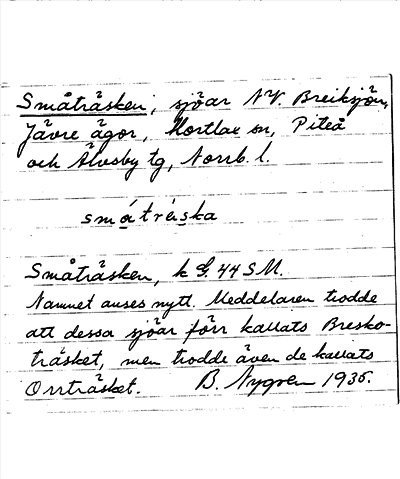 Småträsken, sjöar NV. Breiksjön,
Jävre ägor, Hortlax sn, Piteå
och Älvsby tg, Norrb. l.
småträska
Småträsken, k G. 44 SM.
Namnet anses nytt. Meddelaren trodde
att dessa sjöar förr kallats Bresko-
träsket, men trodde även de kallats
Orrträsket. B. Nygren 1935.